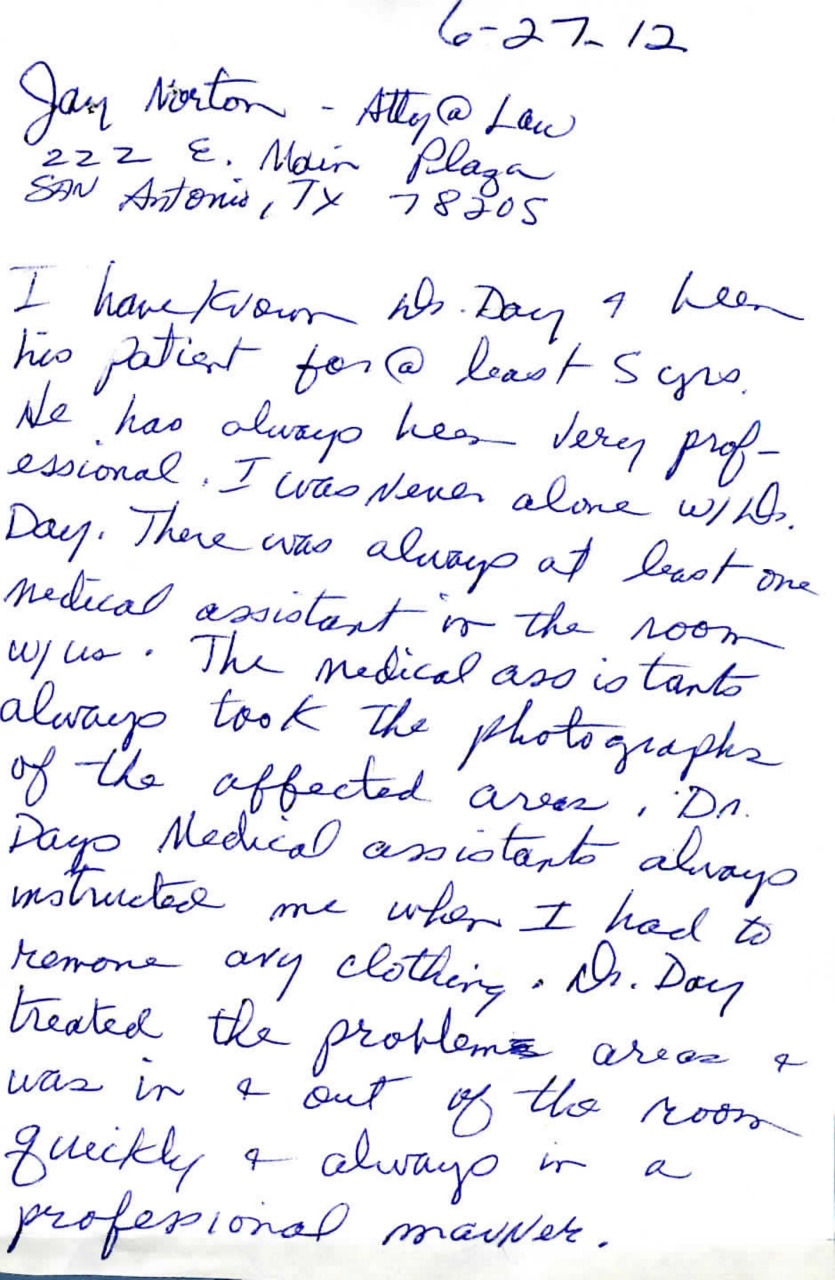 6-27-12
Jay Norton - Atty @ Law
222 E. Main Plaza
SAN Antonio, TX 78205
I have known Dr. Day & been
his patient for @ least 5 yrs.
He has always been very prof-
essional. I was Never alone w/ Dr.
Day. There was always at least one
medical assistant in the room
w/ us. The medical assistants
always took the photographs
of the affected areas. Dr.
Days Medical assistants always
instructed me when I had to
remove any clothing. Dr. Day
treated the problem areas &
was in & out of the room
quickly & always in a
professional manner.